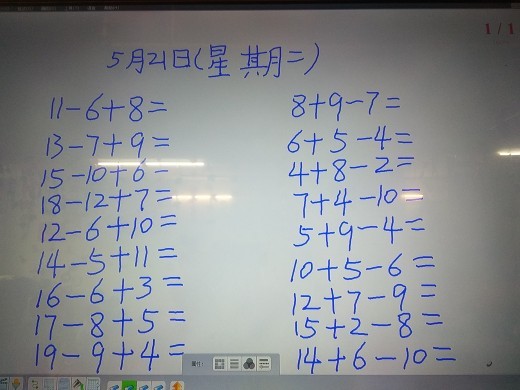 1/1
5月21日(星期二)
11-6+8=
13-7+9=
15-10+6=
18-12+7=
12-6+10=
14-5+11=
16-6+3=
17-8+5=
19-9+4=
8+9-7=
6+5-4=
4+8-2=
7+4-10=
5+9-4=
10+5-6=
12+7-9=
15+2-8=
14+6-10=